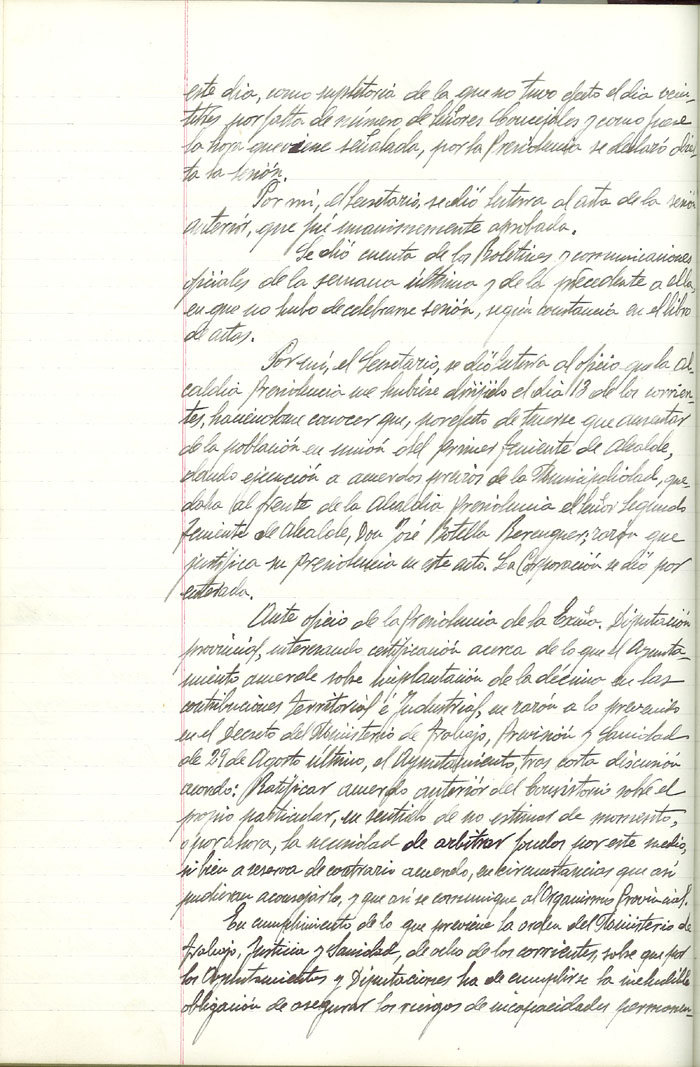 este dia, como supletoria de la que no tuvo efecto el dia vein-
titres por falta de número de Señores Concejales y como fuese
la hora que viene señalada, por la Presidencia se declaró abier-
ta la sesión.
Por mi, el Secretario, se dió lectura al acta de la sesión
anterior, que fué unanimemente aprobada.
Se dió cuenta de los Boletines y comunicaciones
oficiales de la semana última y de la precedente a ella,
en que no hubo de celebrarse sesión, según constancia en el libro
de actas.
Por mi, el Secretario, se dió lectura al oficio que la Al-
caldia Presidencia me hubiese dirijido el dia 13 de los corrien-
tes, haciendome conocer que, por efecto de tenerse que ausentar
de la población en unión del primer Teniente de Alcalde,
dando ejecución a acuerdos previos de la Municipalidad, que-
daba al frente de la Alcaldia Presidencia el Señor Segundo
Teniente de Alcalde, Don José Botella Berenguer; razón que
justifica su presidencia en este acto. La Corporación se dió por
enterada.
Ante oficio de la Presidencia de la Excma. Diputación
provincial, interesando certificación acerca de lo que el Ayunta-
miento acuerde sobre implantación de la décima en las
contribuciones Territorial é Industrial, en razón a lo prevenido
en el Decreto del Ministerio de Trabajo, Previsión y Sanidad
de 29 de Agosto último, el Ayuntamiento, tras corta discusión
acordo: Ratificar acuerdo anterior del Consistorio sobre el
propio particular, en sentido de no estimar de momento,
o por ahora, la necesidad de arbitrar fondos por este medio,
si bien a reserva de contrario acuerdo, en circunstancias que asi
pudieran aconsejarlo, y que asi se comunique al Organismo Provincial.
En cumplimiento de lo que previene la orden del Ministerio de
Trabajo, Justicia y Sanidad, de ocho de los corrientes, sobre que por
los Ayuntamientos y Diputaciones ha de cumplirse la ineludible
obligación de asegurar los riesgos de incapacidades permanen-